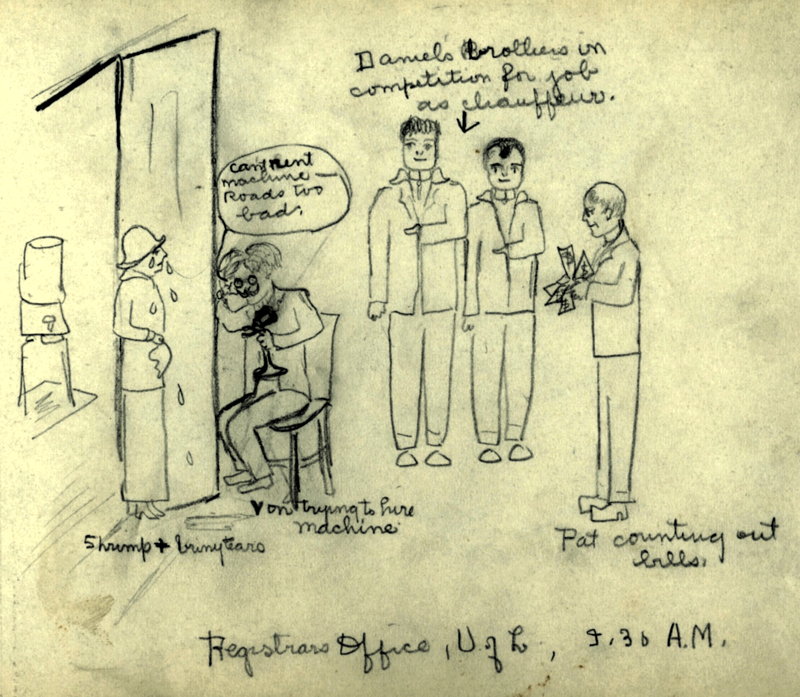 Daniels Brothers in
competition for job
as chauffeur.
can't rent
machine —
Roads too
bad.
Von trying to hire
machine.
Shrimp + briny tears
Pat counting out
bills.
Registrars Office, U of L, 9.30 A.M.